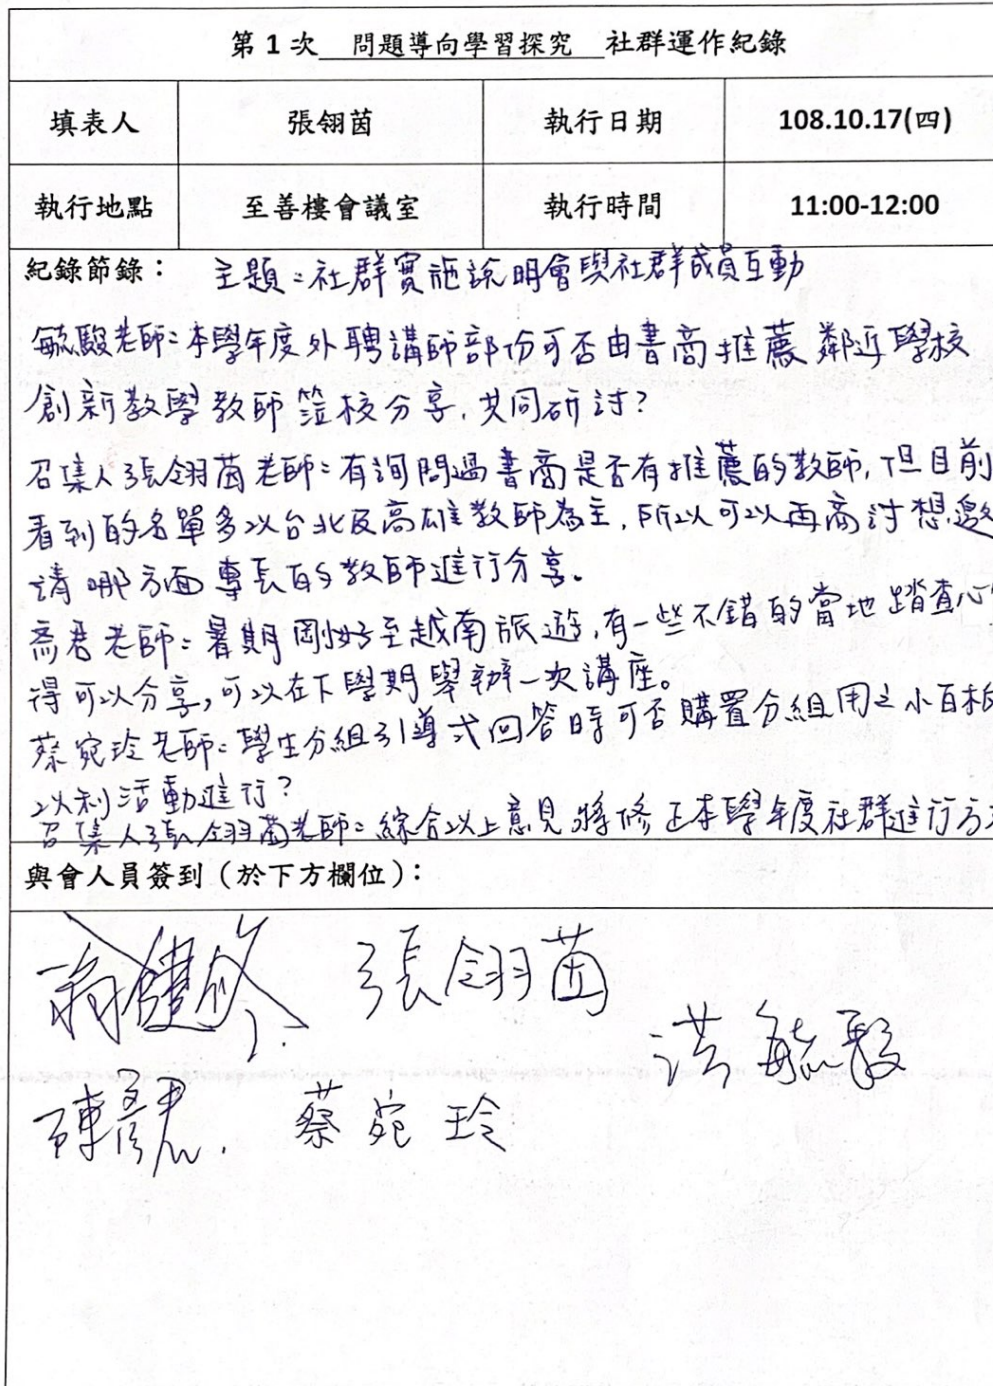 第 1 次 問題導向學習探究 社群運作紀錄
填表人 張翎茵 執行日期 108.10.17(四)
執行地點 至善樓會議室 執行時間 11:00-12:00
紀錄節錄： 主題:社群實施說明會與社群成員互動
毓駿老師:本學年度外聘講師部份可否由書商推薦鄰近學校
創新教學教師蒞校分享,共同研討?
召集人張翎茵老師:有詢問過書商是否有推薦的教師,但目前
看到的名單多以台北及高雄教師為主,所以可以再商討想邀
請哪方面專長的教師進行分享。
老師:暑期剛好至越南旅遊,有一些不錯的當地踏查心
得可以分享,可以在下學期舉辦一次講座。
蔡宛玲老師:學生分組引導式回答時可否購置分組用之小白板
以利活動進行?
召集人張翎茵老師:綜合以上意見將修正本學年度社群進行方
與會人員簽到（於下方欄位）：
張翎茵
洪毓駿
陳
蔡宛玲